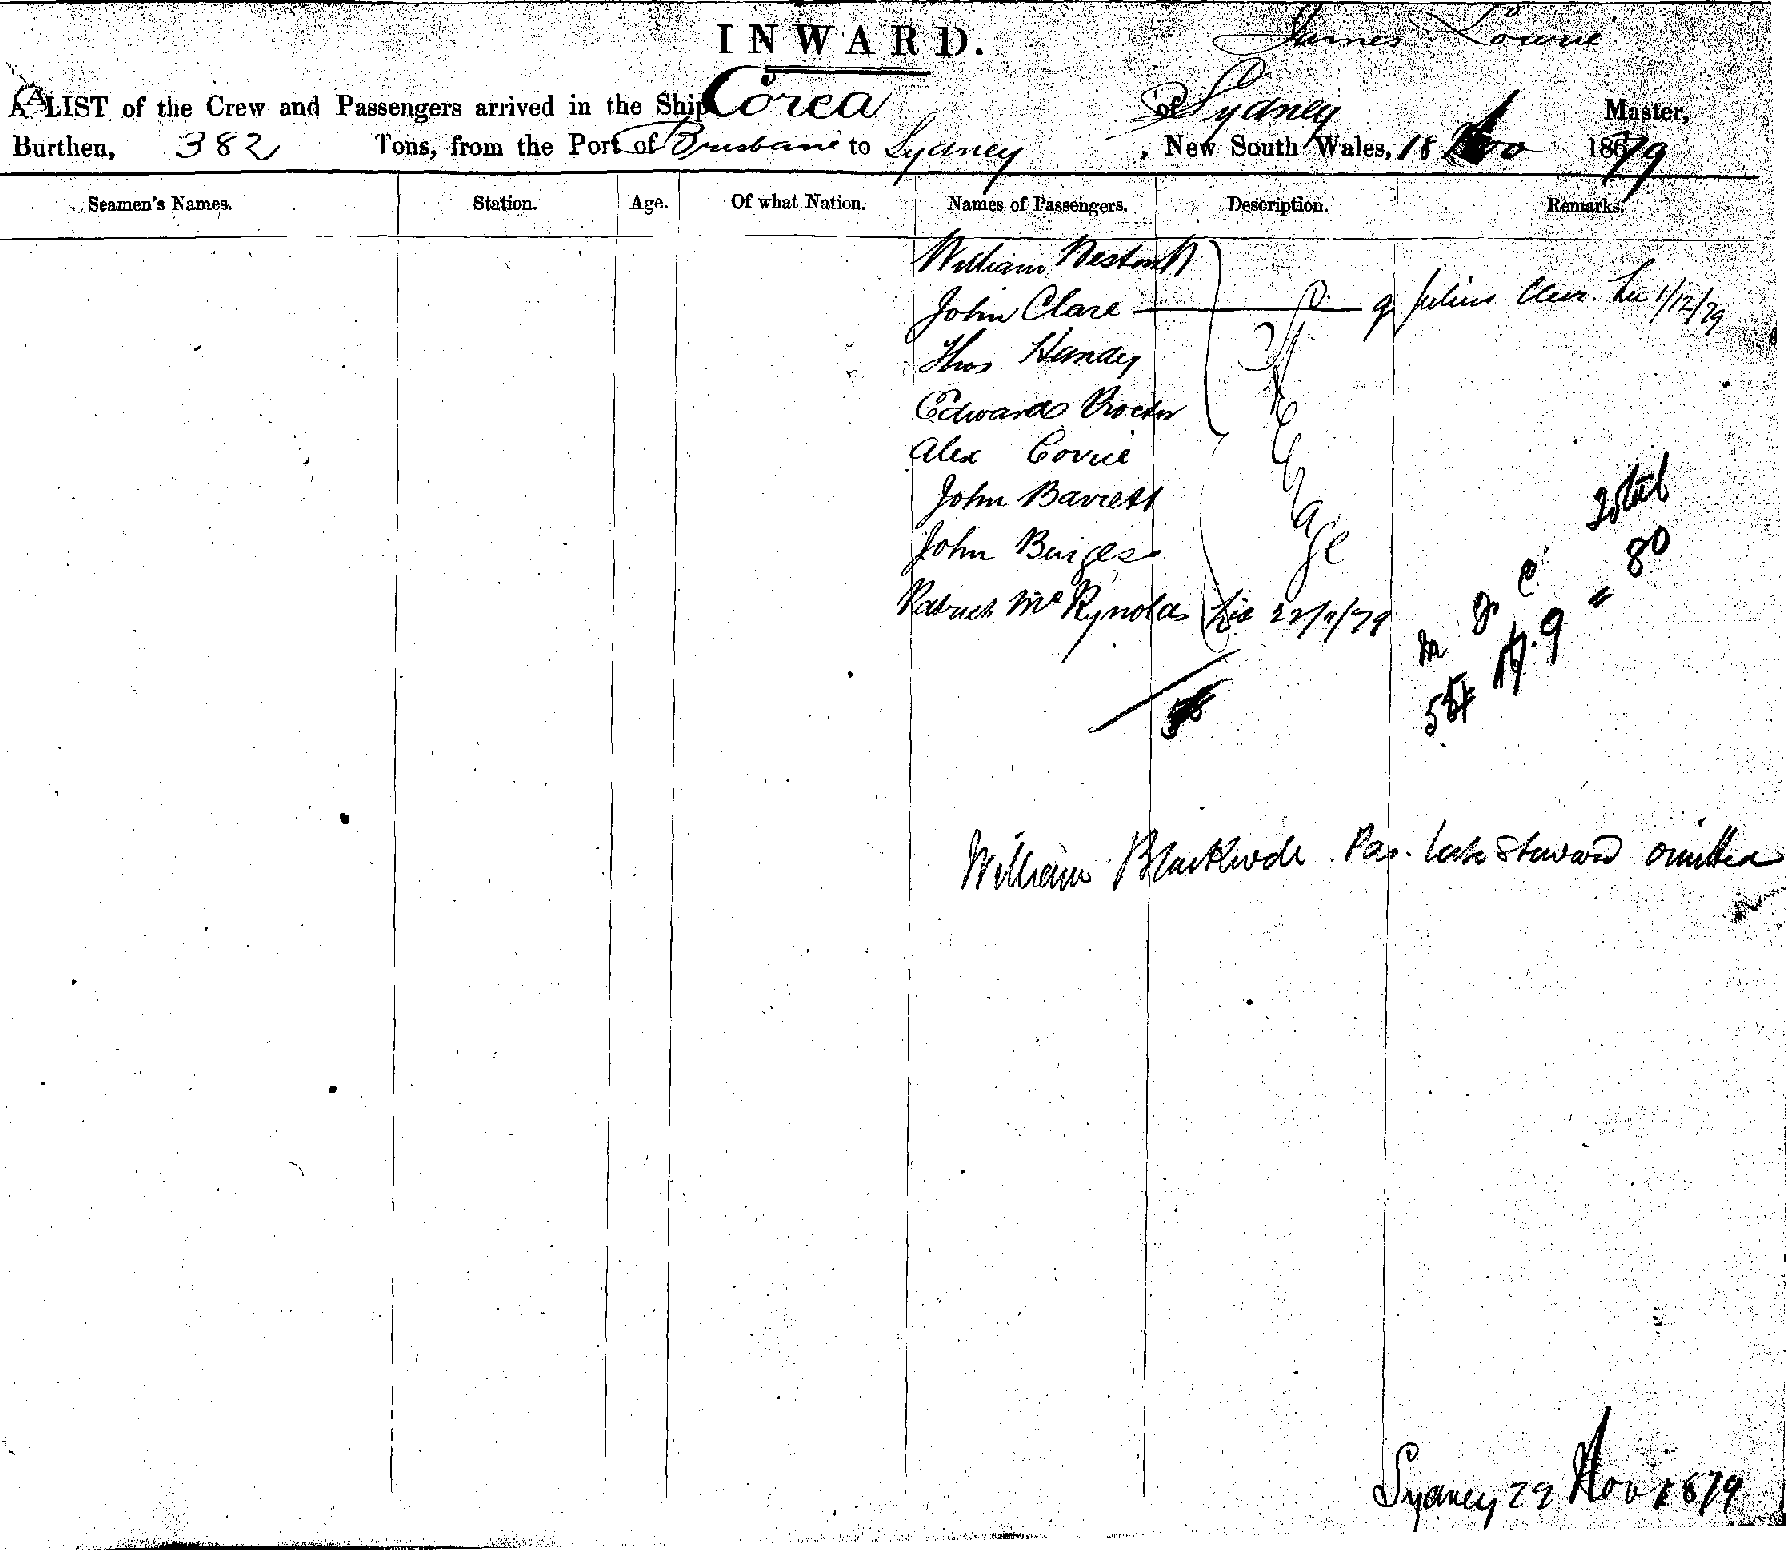 INWARD.
James Lowrie
A LIST of the Crew and Passengers arrived in the Ship Corea of Sydney Master,
Burthen, 382 Tons, from the Port of Brisbane to Sydney, New South Wales, 18 Nov 1879
Seamen's Names. Station. Age. Of what Nation. Names of Passengers. Description. Remarks.
William
John Clare Julius 1/12/79
Thos Handey
Edward Procter
Alex Corrie
John Barrett
John Burges
Steerage
Patrick McRynolds 22/11/79
Total
M F C
9 " 80
William Pas. late Steward omitted
Sydney 29 Nov 1879